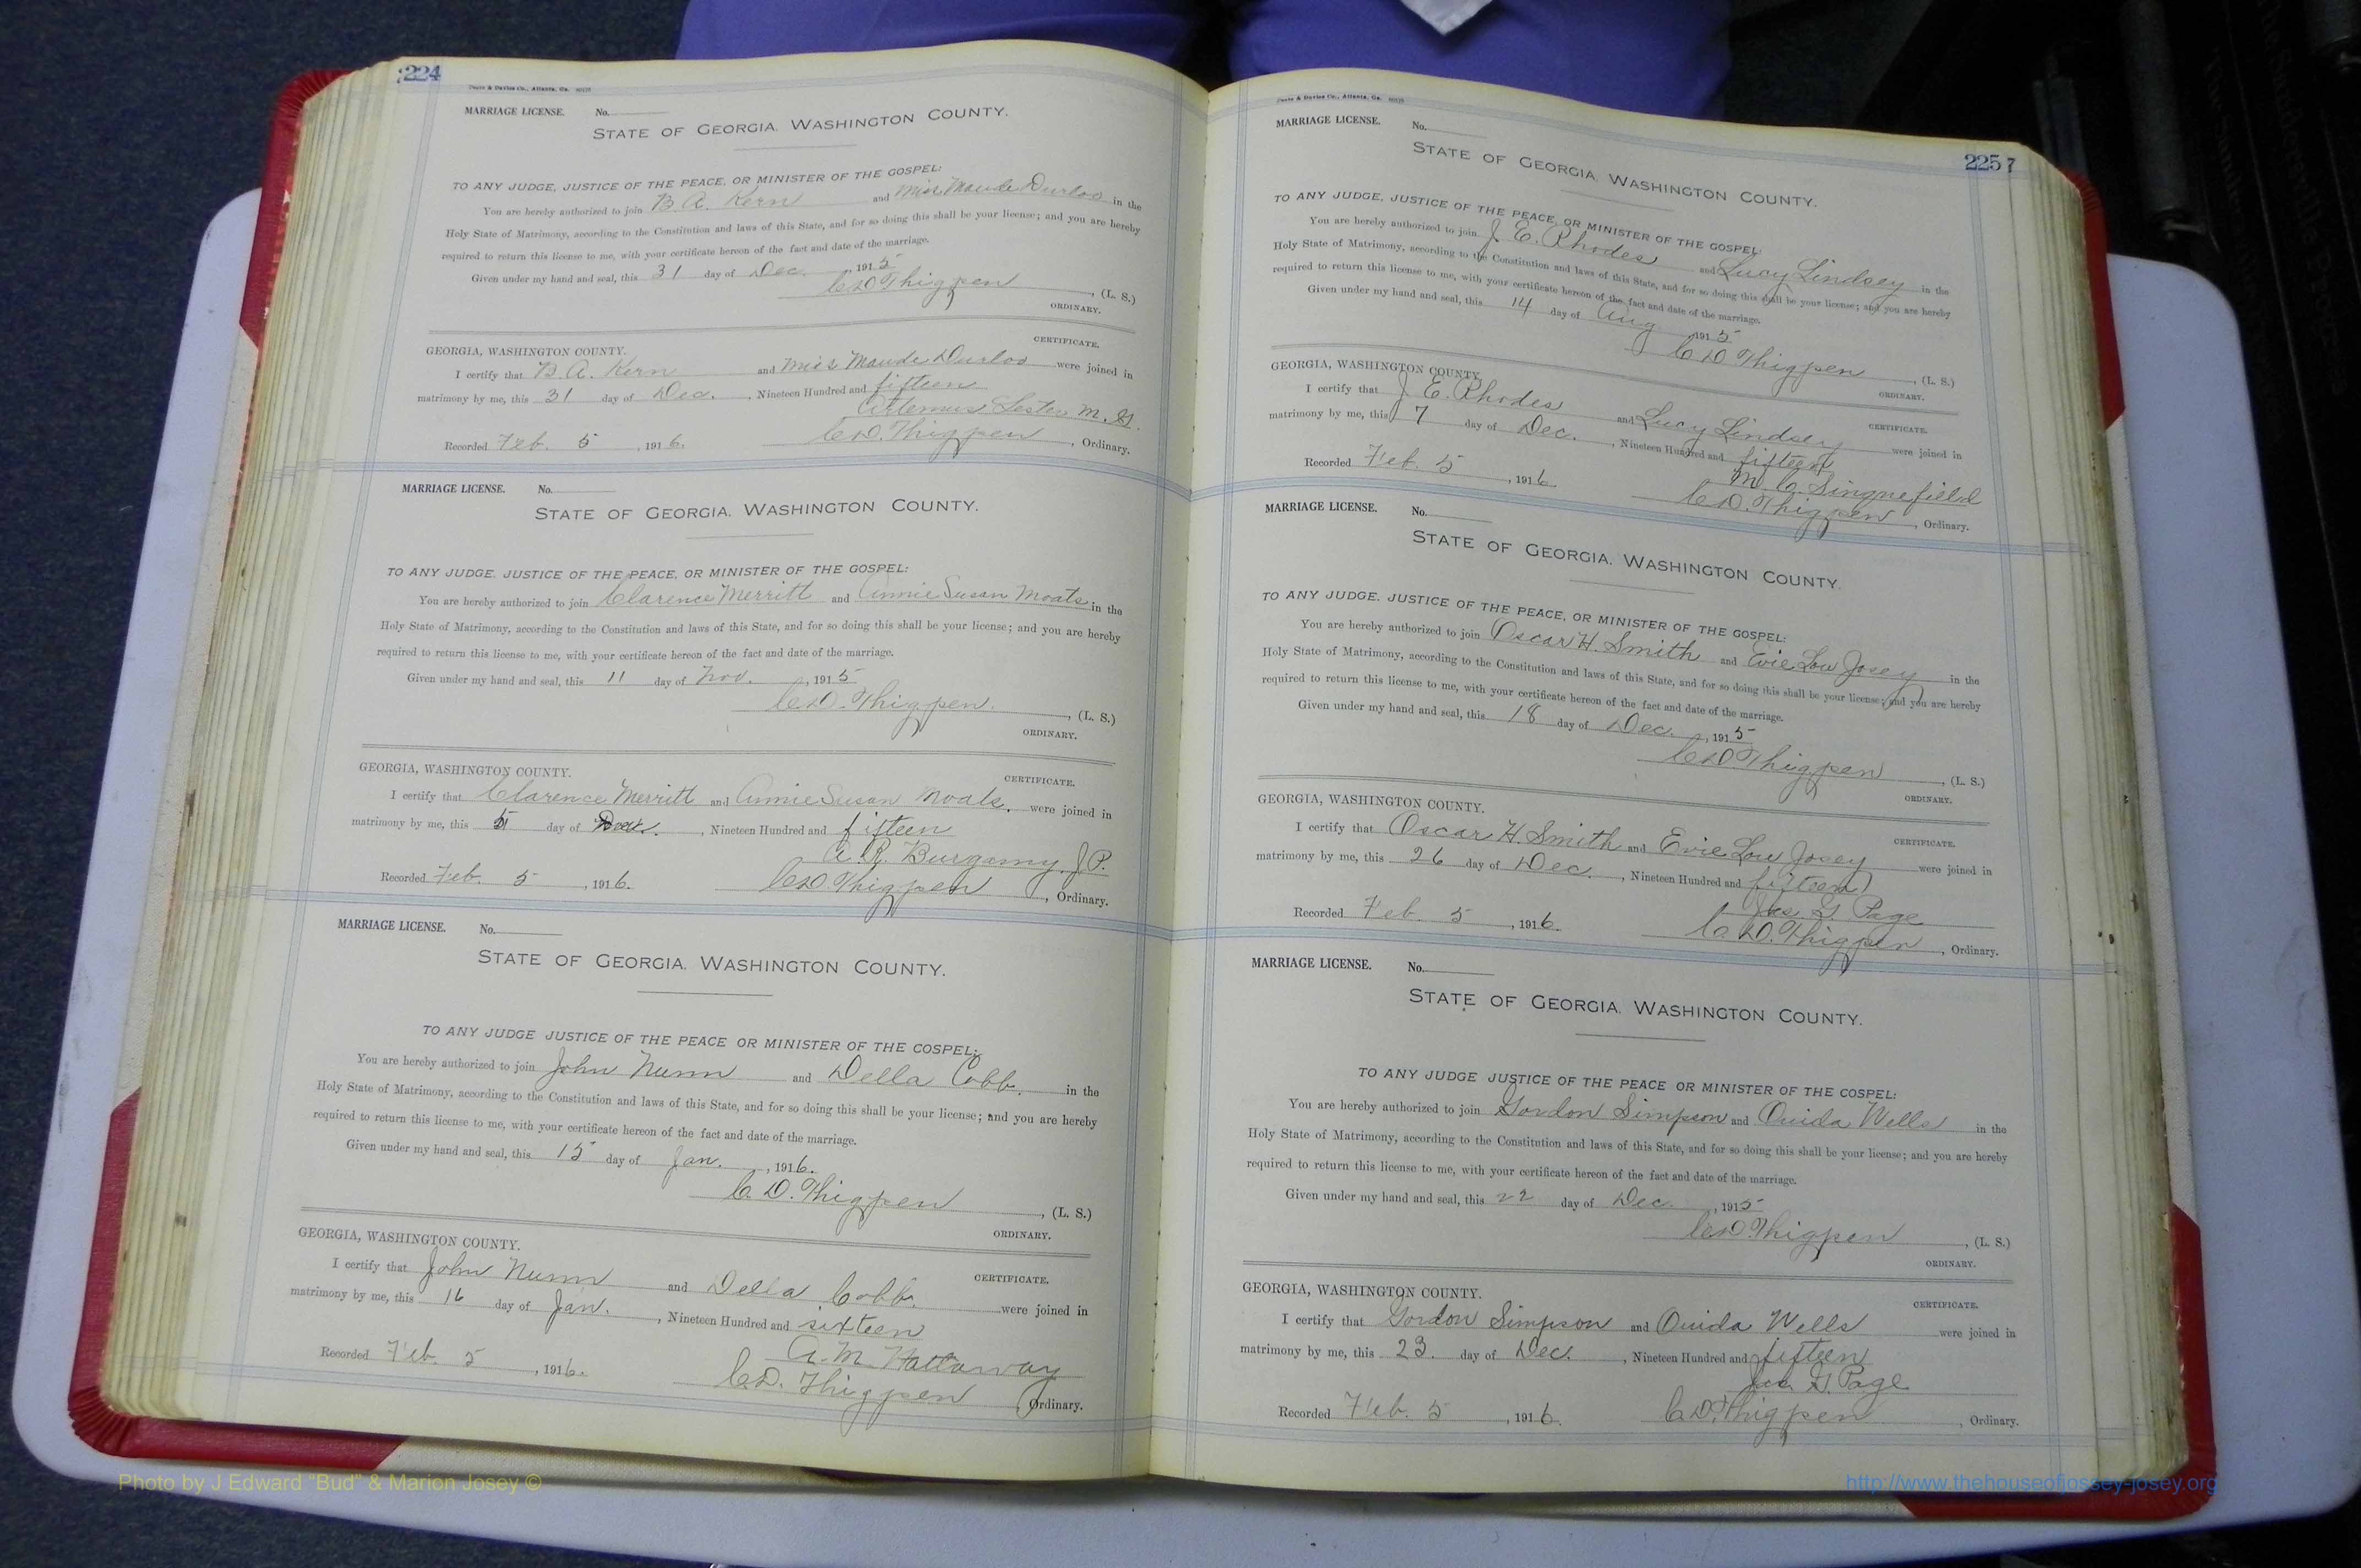 224
MARRIAGE LICENSE. No.
STATE OF GEORGIA, WASHINGTON COUNTY.
TO ANY JUDGE, JUSTICE OF THE PEACE, OR MINISTER OF THE GOSPEL:
You are hereby authorized to join B. A. Kern and Miss Maude Durloo in the
Holy State of Matrimony, according to the Constitution and laws of this State, and for so doing this shall be your license; and you are hereby
required to return this license to me, with your certificate hereon of the fact and date of the marriage.
Given under my hand and seal, this 31 day of Dec. , 1915
C. D. Thigpen , (L. S.)
ORDINARY.
CERTIFICATE.
GEORGIA, WASHINGTON COUNTY.
I certify that B. A. Kern and Miss Maude Durloo were joined in
matrimony by me, this 31 day of Dec. , Nineteen Hundred and fifteen
Artemus Lester M. G.
Recorded Feb. 5 , 1916. C. D. Thigpen , Ordinary.
MARRIAGE LICENSE. No.
STATE OF GEORGIA, WASHINGTON COUNTY.
TO ANY JUDGE, JUSTICE OF THE PEACE, OR MINISTER OF THE GOSPEL:
You are hereby authorized to join Clarence Merritt and Annie Susan Moats in the
Holy State of Matrimony, according to the Constitution and laws of this State, and for so doing this shall be your license; and you are hereby
required to return this license to me, with your certificate hereon of the fact and date of the marriage.
Given under my hand and seal, this 11 day of Nov. , 1915
C. D. Thigpen. , (L. S.)
ORDINARY.
CERTIFICATE.
GEORGIA, WASHINGTON COUNTY.
I certify that Clarence Merritt and Annie Susan Moats. were joined in
matrimony by me, this 5 day of , Nineteen Hundred and fifteen
A. R. Burgamy, J. P.
Recorded Feb. 5 , 1916. C. D. Thigpen , Ordinary.
MARRIAGE LICENSE. No.
STATE OF GEORGIA, WASHINGTON COUNTY.
TO ANY JUDGE JUSTICE OF THE PEACE OR MINISTER OF THE GOSPEL:
You are hereby authorized to join John Nunn and Della Cobb. in the
Holy State of Matrimony, according to the Constitution and laws of this State, and for so doing this shall be your license; and you are hereby
required to return this license to me, with your certificate hereon of the fact and date of the marriage.
Given under my hand and seal, this 15 day of Jan. , 1916.
C. D. Thigpen , (L. S.)
ORDINARY.
CERTIFICATE.
GEORGIA, WASHINGTON COUNTY.
I certify that John Nunn and Della Cobb. were joined in
matrimony by me, this 16 day of Jan. , Nineteen Hundred and sixteen
A. M. Hattaway
Recorded Feb. 5 , 1916. C. D. Thigpen Ordinary.
225 7
MARRIAGE LICENSE. No.
STATE OF GEORGIA, WASHINGTON COUNTY.
TO ANY JUDGE, JUSTICE OF THE PEACE, OR MINISTER OF THE GOSPEL:
You are hereby authorized to join J. E. Rhodes and Lucy Lindsey in the
Holy State of Matrimony, according to the Constitution and laws of this State, and for so doing this shall be your license; and you are hereby
required to return this license to me, with your certificate hereon of the fact and date of the marriage.
Given under my hand and seal, this 14 day of Aug , 1915
C. D. Thigpen , (L. S.)
ORDINARY.
CERTIFICATE.
GEORGIA, WASHINGTON COUNTY.
I certify that J. E. Rhodes and Lucy Lindsey were joined in
matrimony by me, this 7 day of Dec. , Nineteen Hundred and fifteen
M. C. Singuefield
Recorded Feb. 5 , 1916. C. D. Thigpen , Ordinary.
MARRIAGE LICENSE. No.
STATE OF GEORGIA, WASHINGTON COUNTY.
TO ANY JUDGE, JUSTICE OF THE PEACE, OR MINISTER OF THE GOSPEL:
You are hereby authorized to join Oscar H. Smith and Evie Lou Josey in the
Holy State of Matrimony, according to the Constitution and laws of this State, and for so doing this shall be your license; and you are hereby
required to return this license to me, with your certificate hereon of the fact and date of the marriage.
Given under my hand and seal, this 18 day of Dec. , 1915
C. D. Thigpen , (L. S.)
ORDINARY.
CERTIFICATE.
GEORGIA, WASHINGTON COUNTY.
I certify that Oscar H. Smith and Evie Lou Josey were joined in
matrimony by me, this 26 day of Dec. , Nineteen Hundred and fifteen
Jas. G. Page
Recorded Feb. 5 , 1916. C. D. Thigpen , Ordinary.
MARRIAGE LICENSE. No.
STATE OF GEORGIA, WASHINGTON COUNTY.
TO ANY JUDGE JUSTICE OF THE PEACE OR MINISTER OF THE GOSPEL:
You are hereby authorized to join Gordon Simpson and Ouida Wells in the
Holy State of Matrimony, according to the Constitution and laws of this State, and for so doing this shall be your license; and you are hereby
required to return this license to me, with your certificate hereon of the fact and date of the marriage.
Given under my hand and seal, this 22 day of Dec. , 1915
C. D. Thigpen , (L. S.)
ORDINARY.
CERTIFICATE.
GEORGIA, WASHINGTON COUNTY.
I certify that Gordon Simpson and Ouida Wells were joined in
matrimony by me, this 23. day of Dec. , Nineteen Hundred and fifteen
Jas. G. Page
Recorded Feb. 5 , 1916. C. D. Thigpen , Ordinary.
Photo by J Edward "Bud" & Marion Josey ©
http://www.thehouseofjossey-josey.org